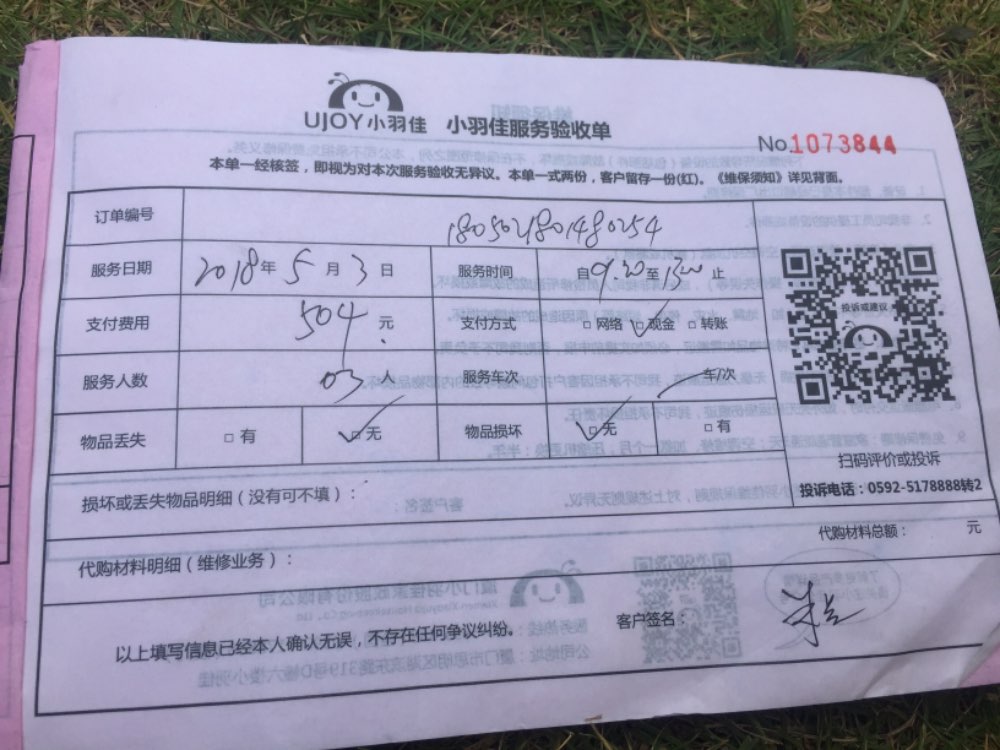 UJOY小羽佳 小羽佳服务验收单
No.1073844
本单一经核签，即视为对本次服务验收无异议。本单一式两份，客户留存一份(红)。《维保须知》详见背面。
订单编号 1805021801480254
服务日期 2018年5月3日 服务时间 自9:30至1300止
支付费用 504元 支付方式 □网络 □现金 □转账
投诉或建议
服务人数 03人 服务车次 车/次
物品丢失 □有 □无 物品损坏 □无 □有
扫码评价或投诉
损坏或丢失物品明细（没有可不填）：
投诉电话：0592-5178888转2
代购材料明细（维修业务）：
代购材料总额： 元
以上填写信息已经本人确认无误，不存在任何争议纠纷。
客户签名：